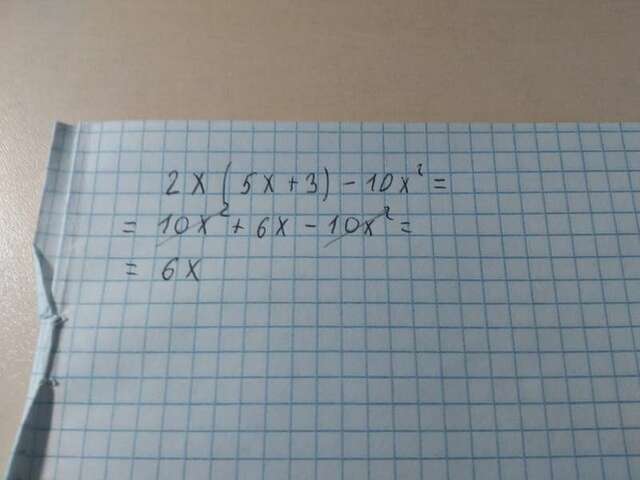 2x(5x+3)-10x²=
=10x²+6x-10x²=
=6x